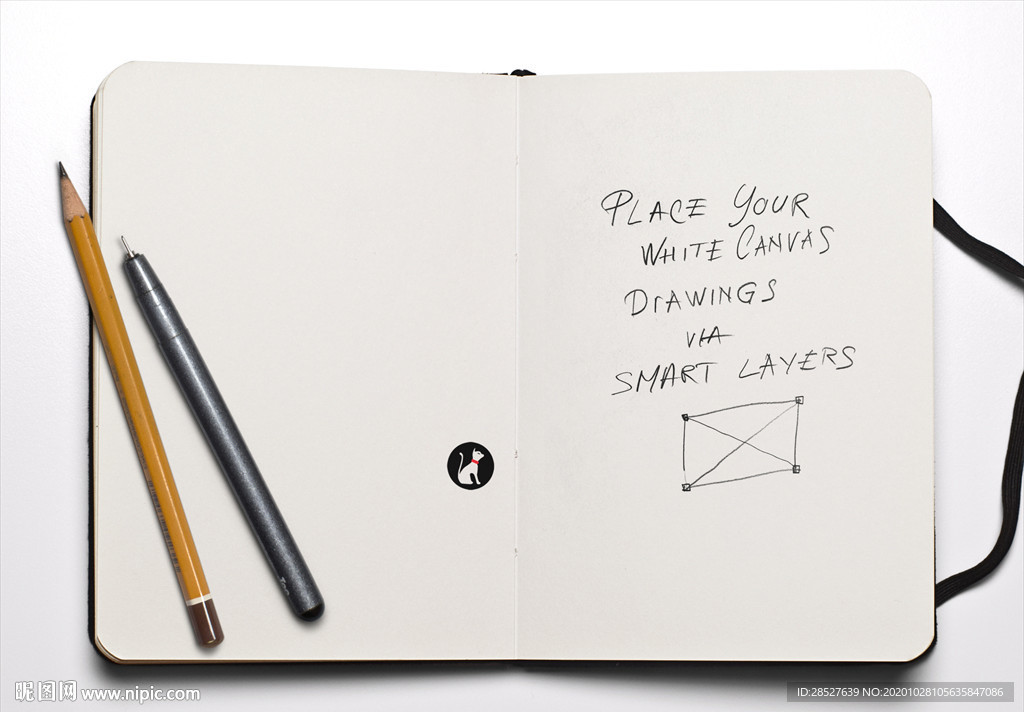 PLACE YOUR
WHITE CANVAS
DRAWINGS
VIA
SMART LAYERS
昵图网 www.nipic.com
ID:28527639 NO:20201028105635847086